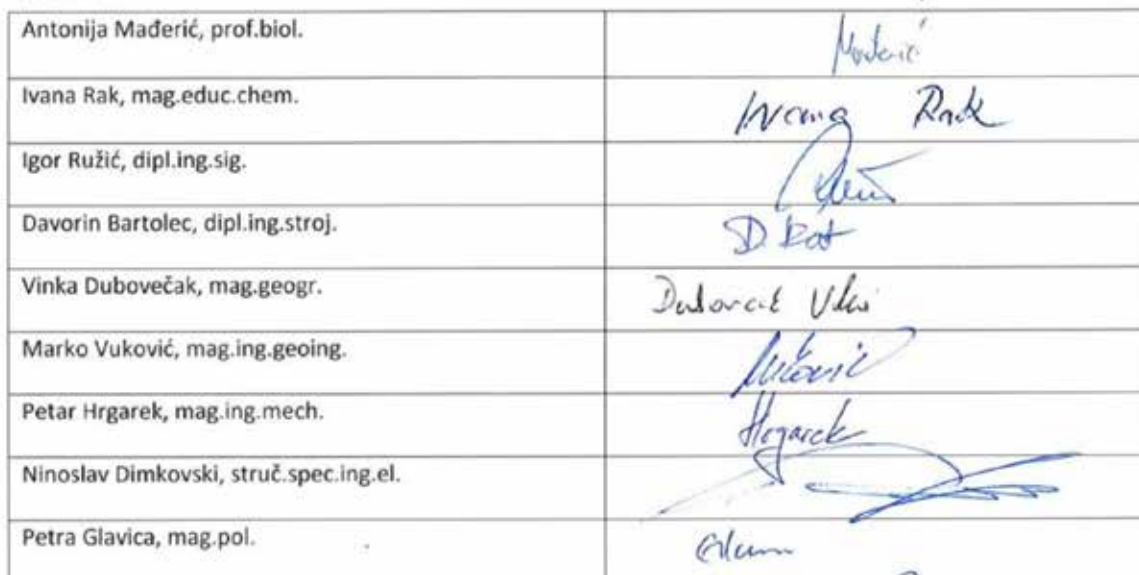 Antonija Mađerić, prof.biol.
Ivana Rak, mag.educ.chem. Ivana Rak
Igor Ružić, dipl.ing.sig.
Davorin Bartolec, dipl.ing.stroj.
Vinka Dubovečak, mag.geogr.
Marko Vuković, mag.ing.geoing.
Petar Hrgarek, mag.ing.mech. Hrgarek
Ninoslav Dimkovski, struč.spec.ing.el.
Petra Glavica, mag.pol.